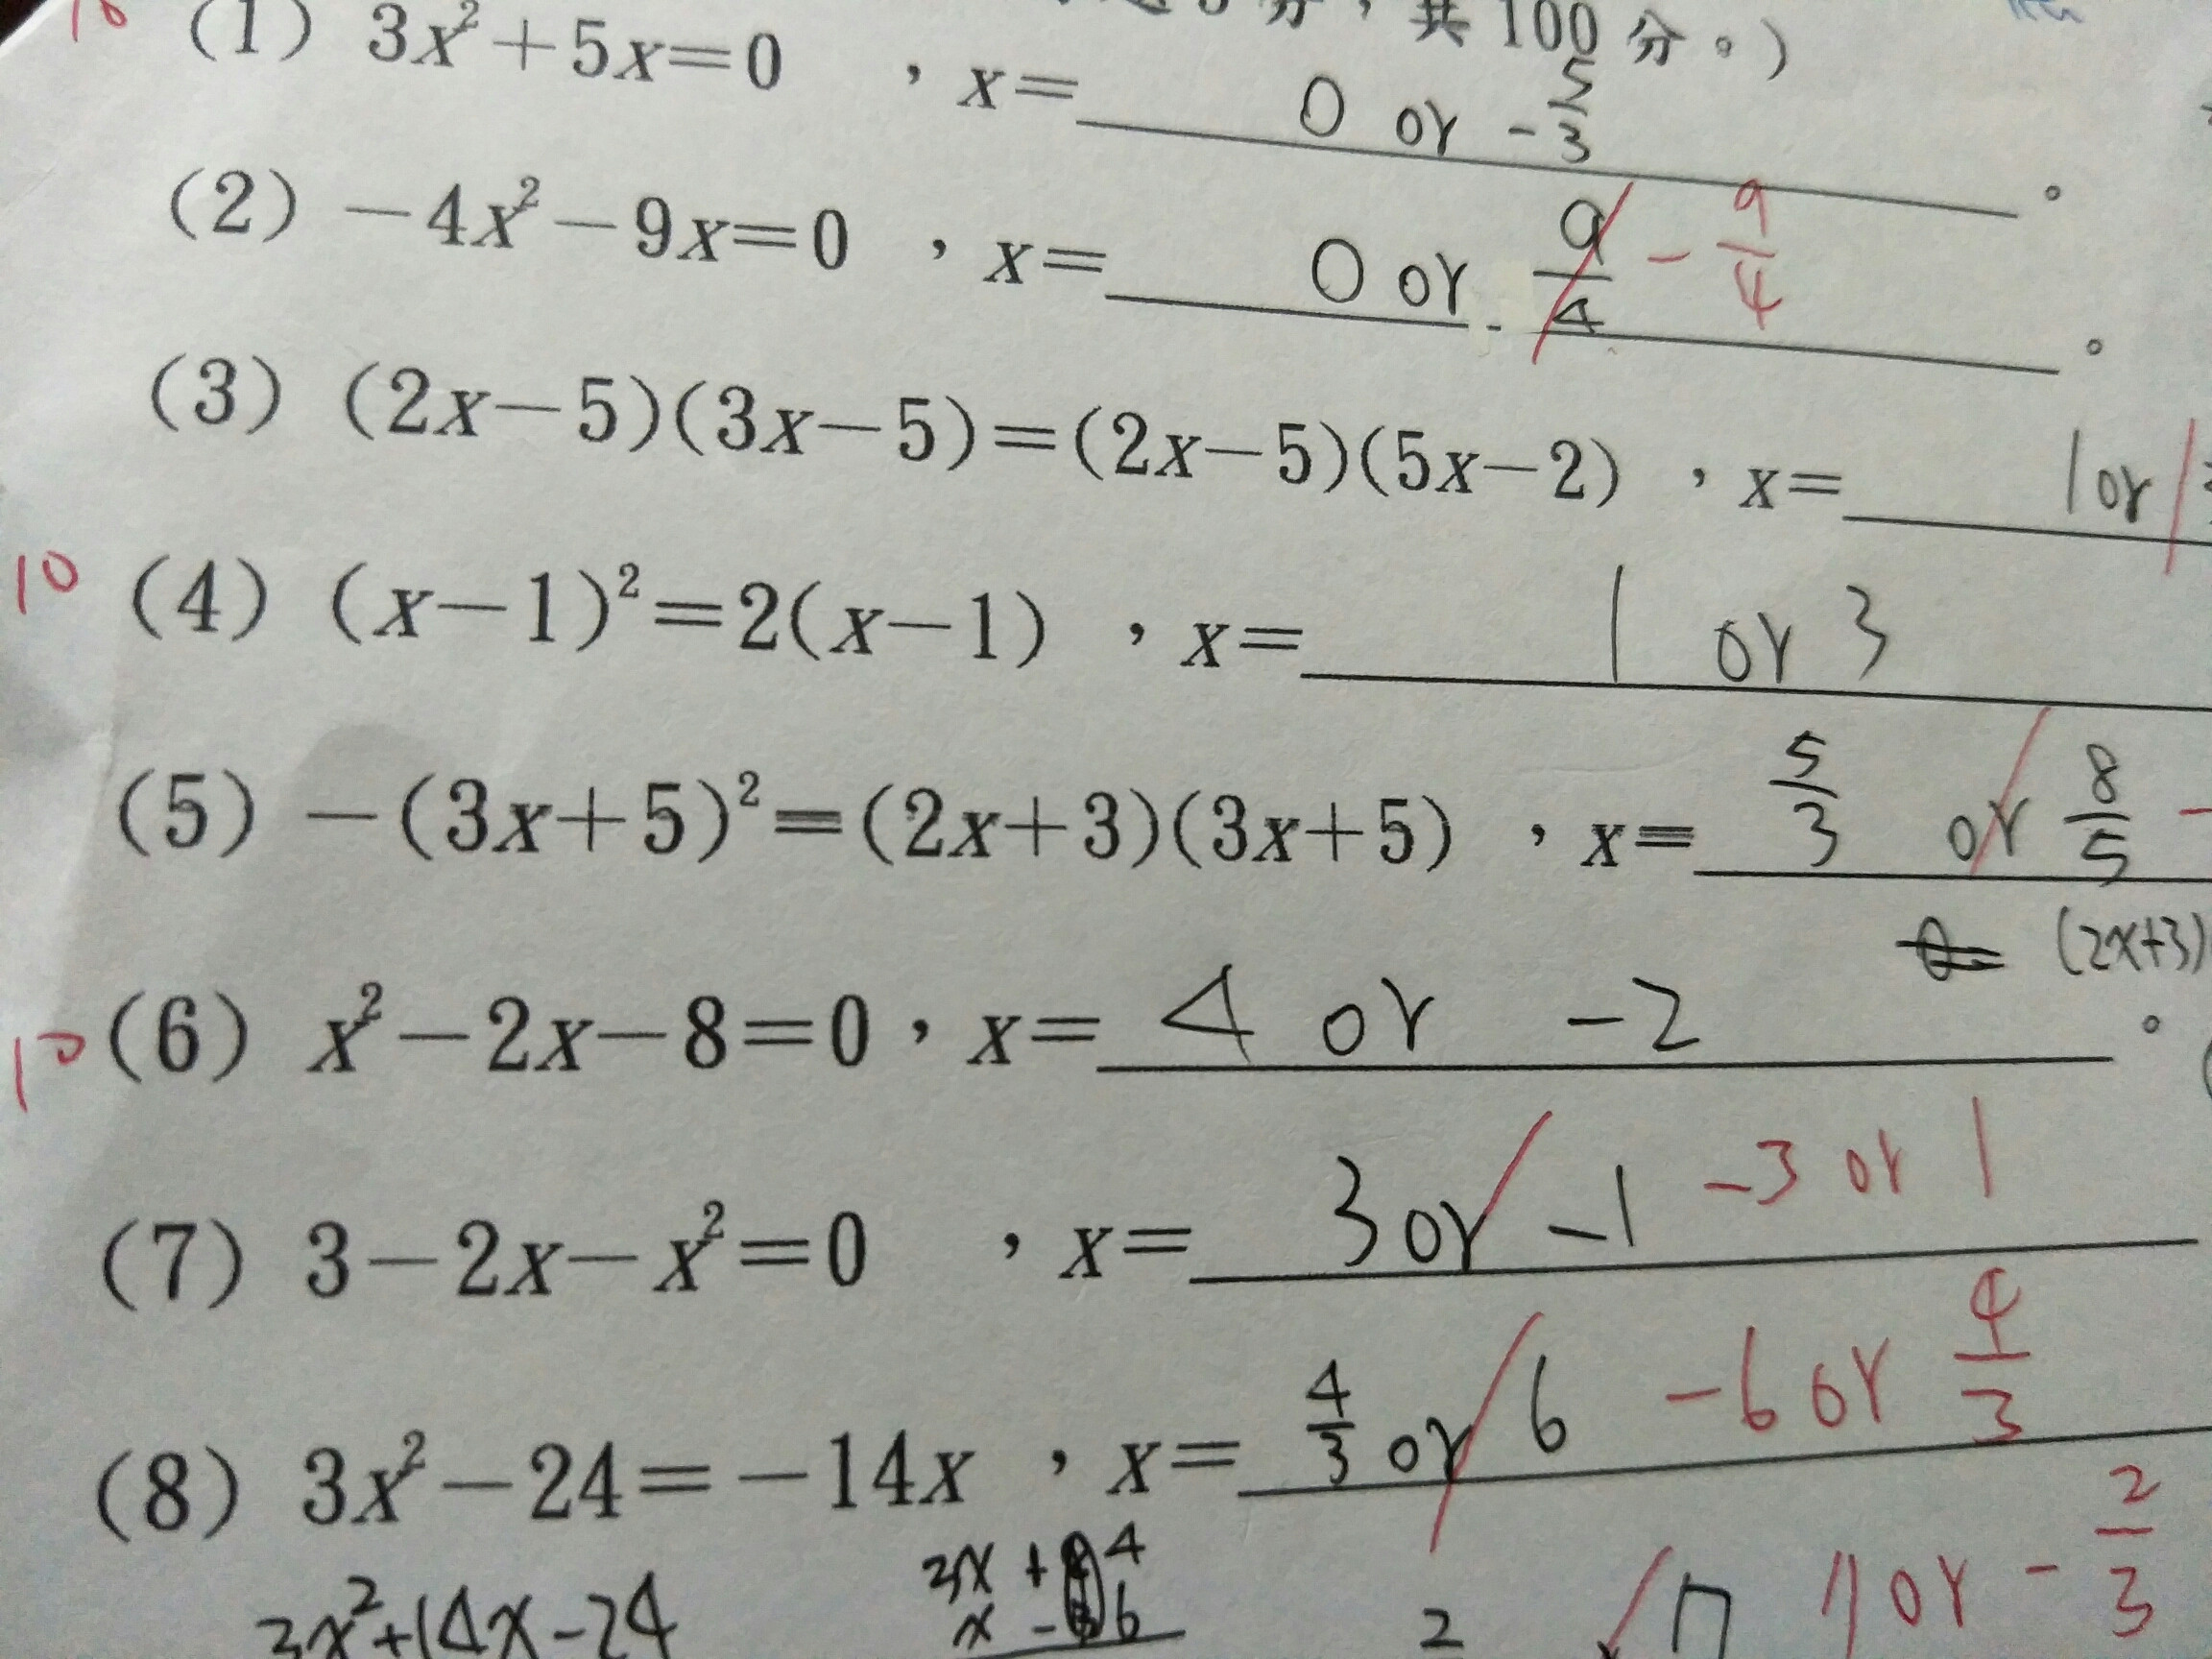 分，共100分。)
10 (1) 3x²+5x=0 ，x= 0 or -5/3 。
(2) -4x²-9x=0 ，x= 0 or 9/4 -9/4 。
(3) (2x-5)(3x-5)=(2x-5)(5x-2) ，x= 1 or
10 (4) (x-1)²=2(x-1) ，x= 1 or 3
(5) -(3x+5)²=(2x+3)(3x+5) ，x= 5/3 or 8/5 -
(2x+3)
10 (6) x²-2x-8=0，x= 4 or -2 。
(7) 3-2x-x²=0 ，x= 3 or -1 -3 or 1
(8) 3x²-24=-14x ，x= 4/3 or 6 -6 or 4/3
3x+4
3x²+14x-24 x-6
2 or -2/3